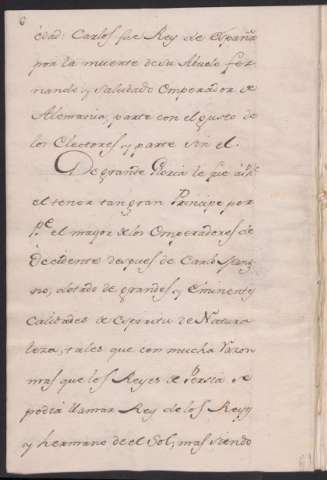 6
edad: Carlos fue Rey de España
por la muerte de su Abuelo fer
nando: y saludado Emperador de
Alemania, parte con el gusto de
los Electores, y parte sin el.
De grande Gloria le fue
el tener tan gran Principe por
el mayor de los Emperadores de
Occidente despues de Carlo Mag
no, dotado de grandes, y Eminentes
Calidades de Espiritu de Natura
leza, tales que con mucha razon
mas que los Reyes de Persia se
podia llamar Rey de los Reyes
y hermano de el Sol, mas siendo